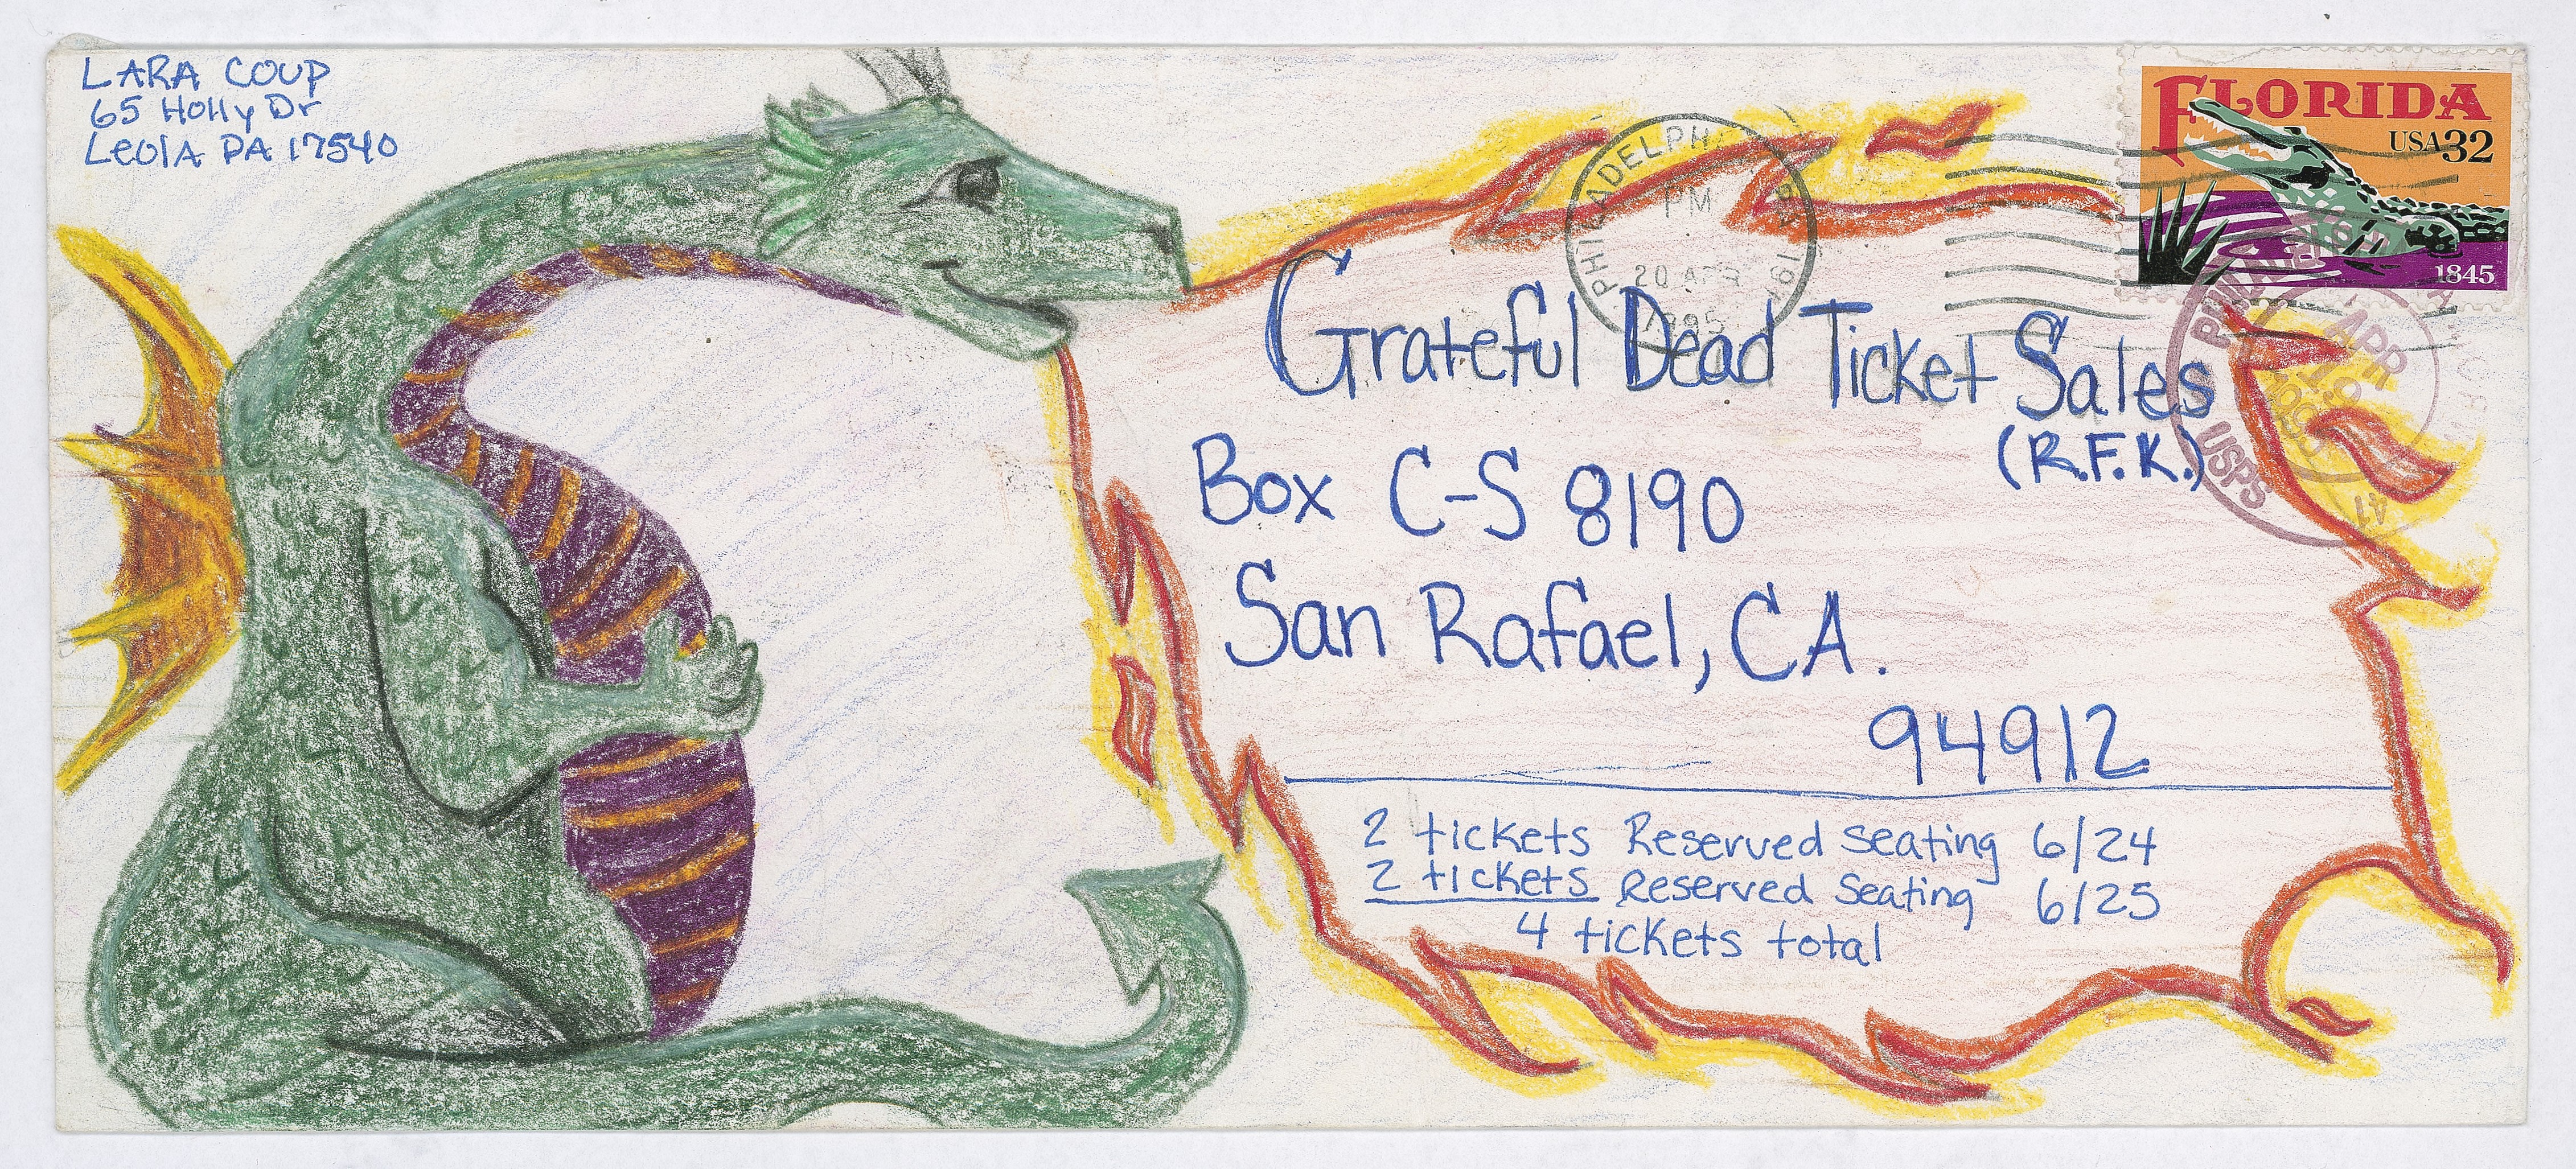 LARA COUP
65 Holly Dr
Leola PA 17540
FLORIDA
USA 32
1845
PHILADELPH
PM
20 APR
1995
PHIL
APR
19
1995
USPS
41
Grateful Dead Ticket Sales
(R.F.K.)
Box C-S 8190
San Rafael, CA.
94912
2 tickets Reserved Seating 6/24
2 tickets Reserved Seating 6/25
4 tickets total